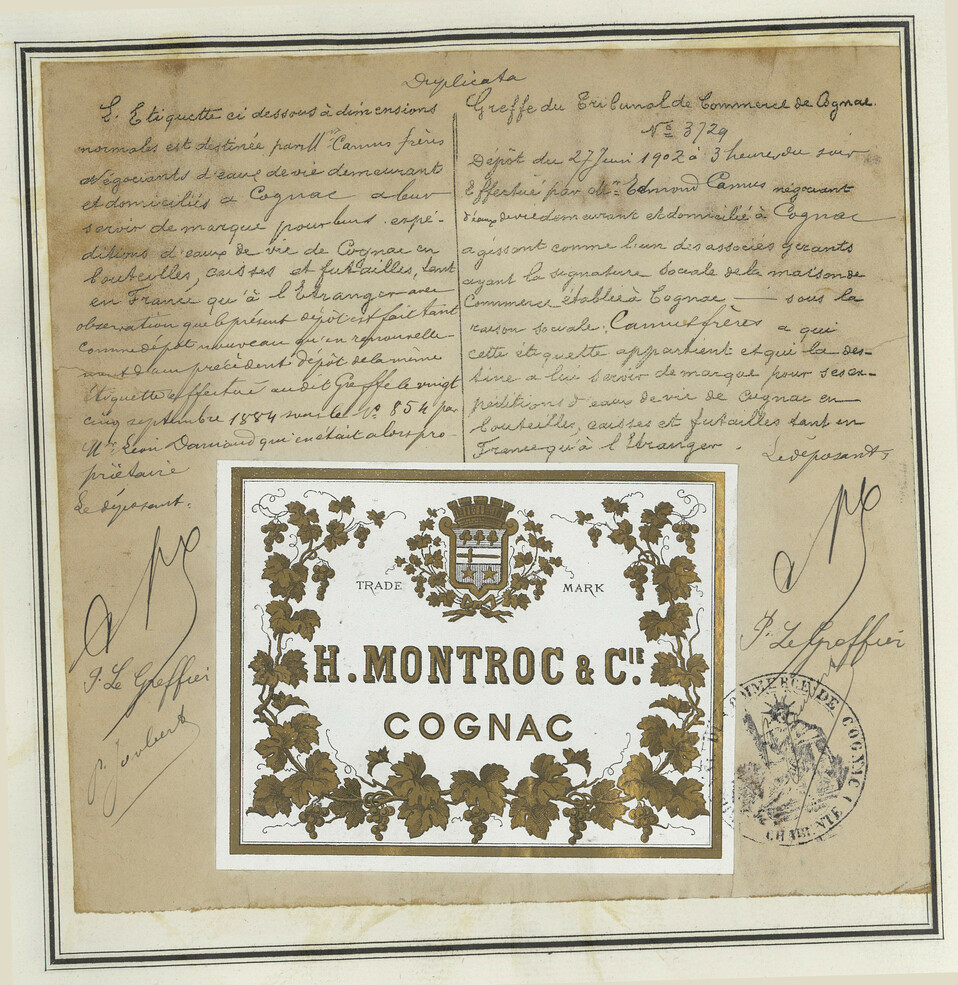 Duplicata
L'Etiquette ci dessous à dimensions
normales est destinée par MM. Camus frères
Négociants d'eaux de vie demeurant
et domiciliés à Cognac a leur
servir de marque pour leurs expé-
ditions d'eaux de vie de Cognac en
bouteilles, caisses et futailles, tant
en France qu'à l'Etranger avec
observation que le présent dépôt est fait tant
comme dépôt nouveau qu'en renouvelle-
ment d'un précédent dépôt de la même
Etiquette effectué au dit Greffe le vingt
cinq septembre 1884 sous le No 854 par
Mr Léon Damaud qui en était alors pro-
priétaire
Le déposant.
P. Le Greffier
P. Joubert
Greffe du Tribunal de Commerce de Cognac.
No 3729
Dépôt du 27 Juin 1902 à 3 heures du soir
Effectué par Mr Edmond Camus négociant
d'eaux de vie demeurant et domicilié à Cognac
agissant comme l'un des associés gérants
ayant la signature sociale de la maison de
Commerce établie à Cognac — sous la
raison sociale: Camus frères a qui
cette étiquette appartient et qui la des-
tine a lui servir de marque pour ses ex-
péditions d'eaux de vie de Cognac en
bouteilles, caisses et futailles tant en
France qu'à l'Etranger.
Le déposant,
P. Le Greffier
TRADE MARK
H. MONTROC & CIE.
COGNAC
COMMERCE DE COGNAC
CHARENTE